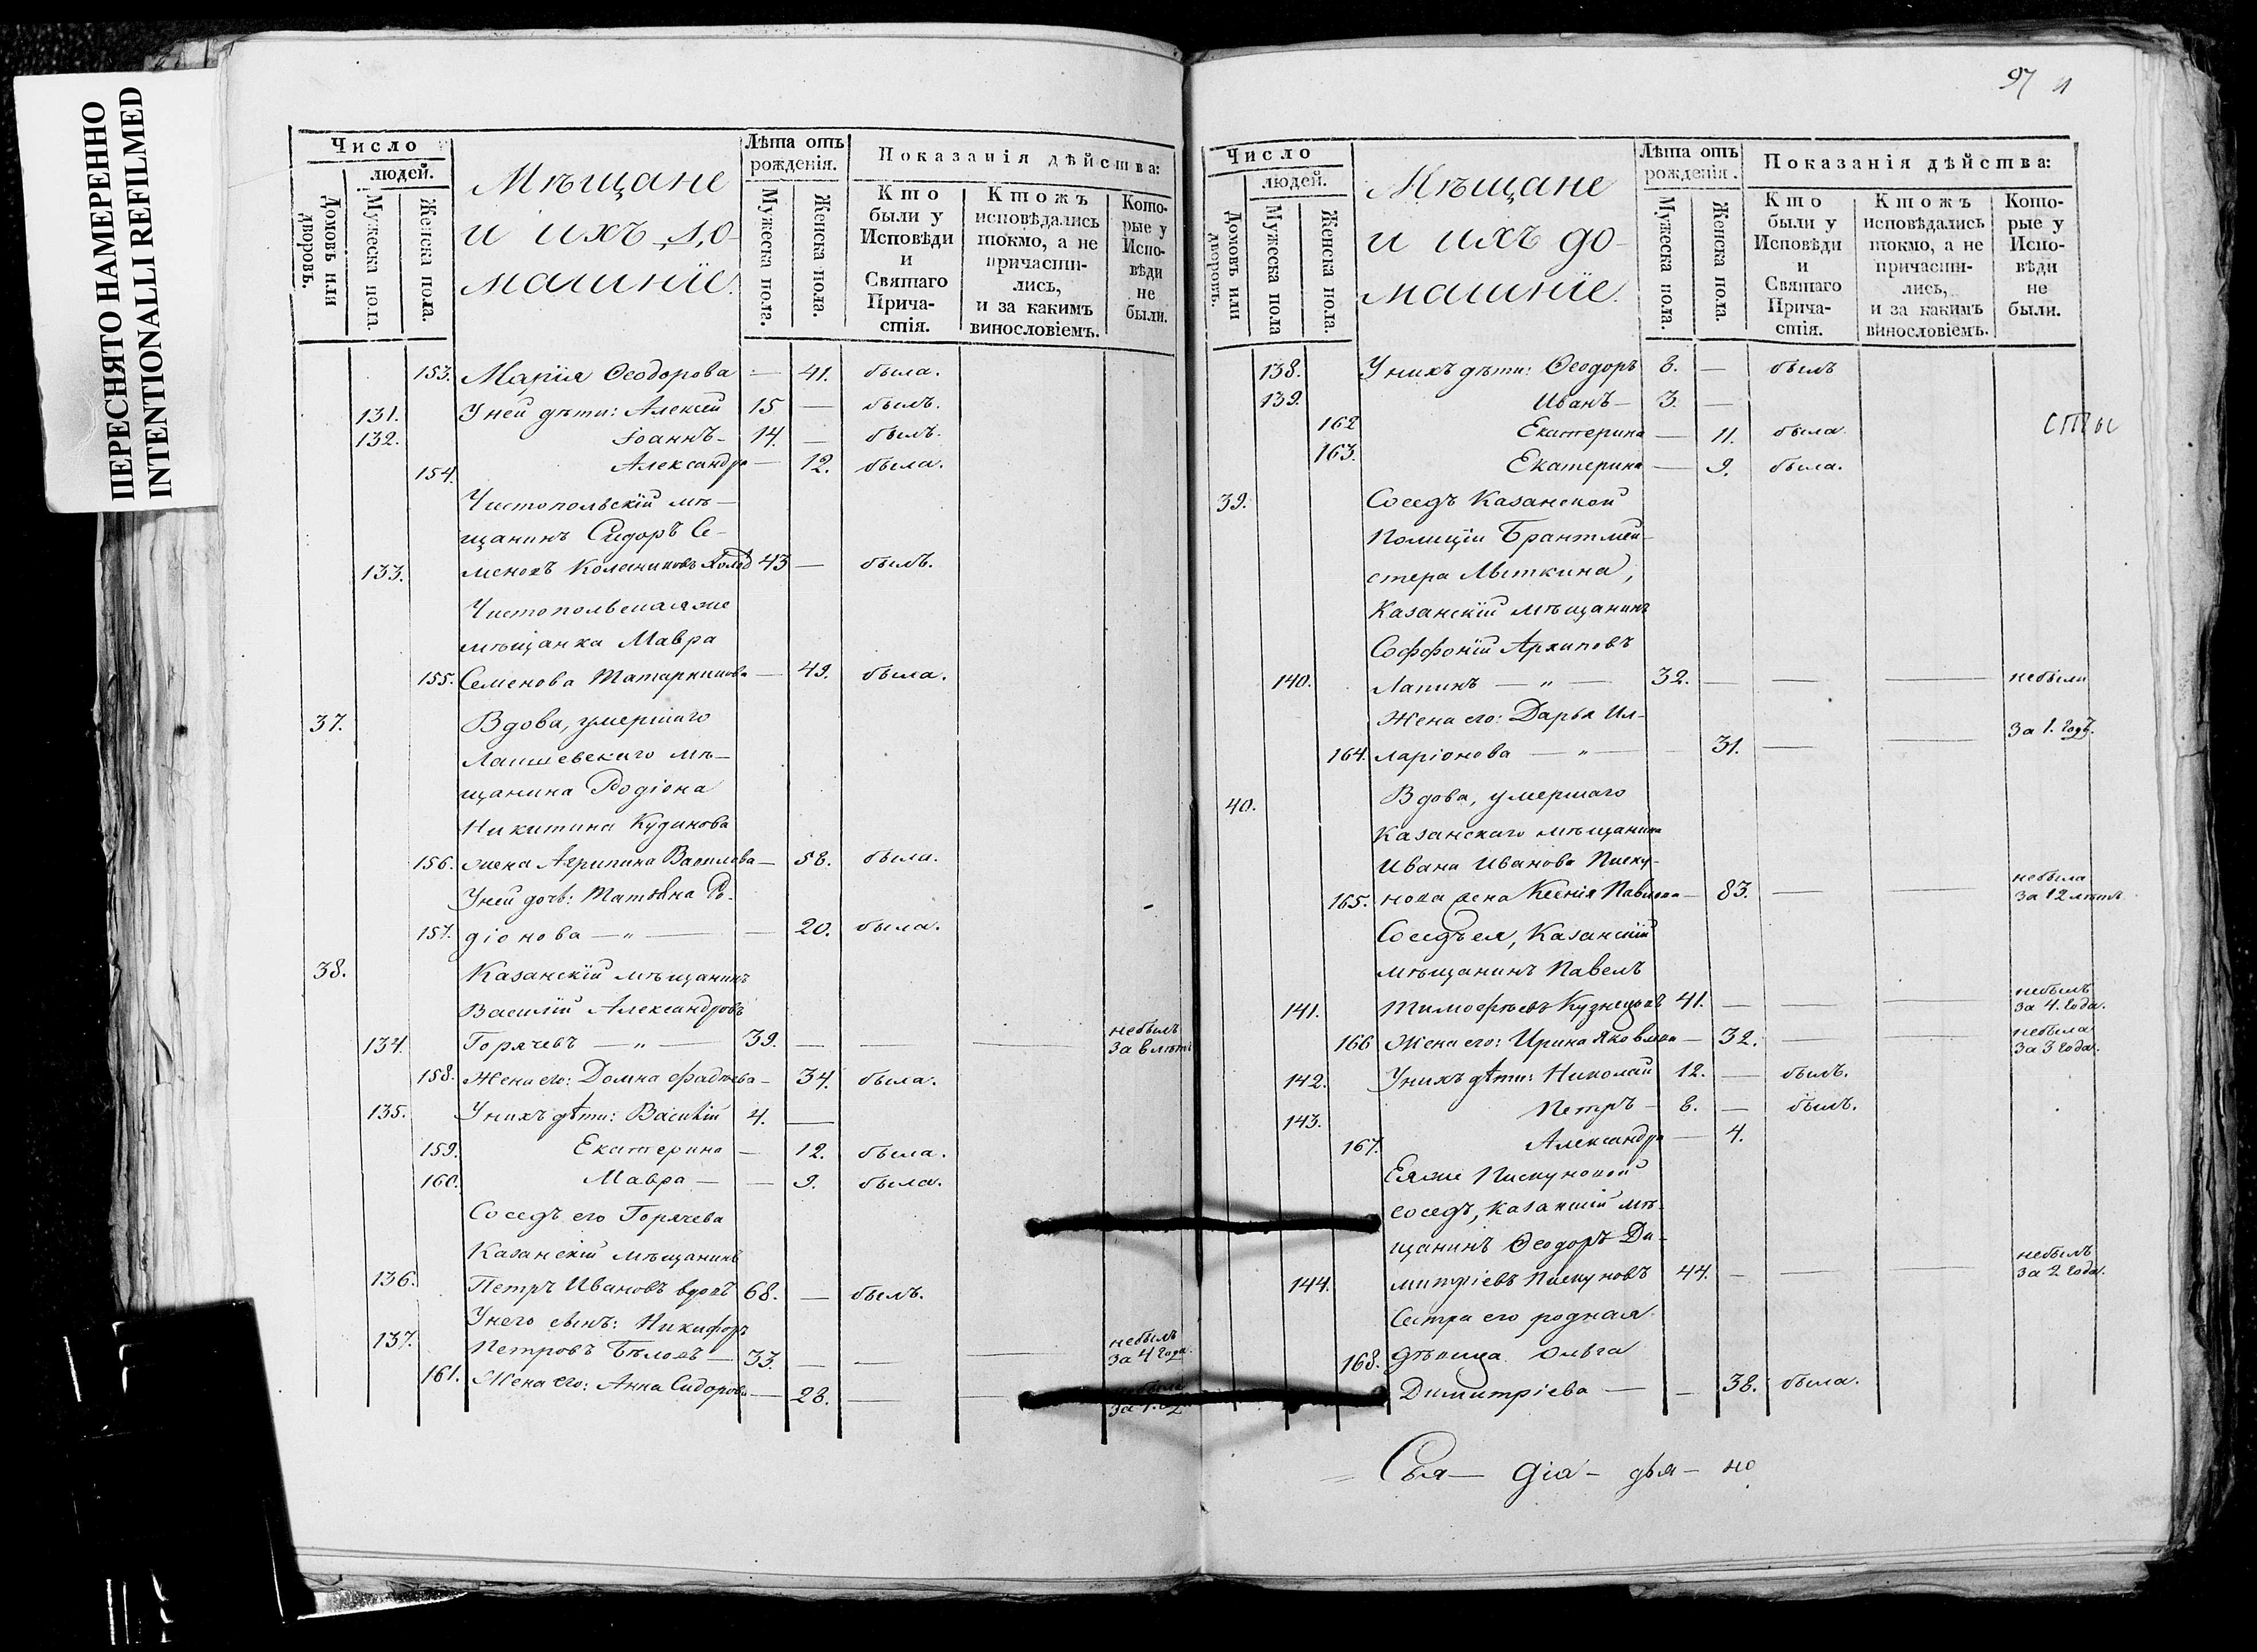 ПЕРЕСНЯТО НАМЕРЕННО
INTENTIONALLI REFILMED
Число
людей.
Домовъ или дворовъ.
Мужеска пола.
Женска пола.
Мѣщане
и ихъ до-
машніе.
Лѣта отъ рожденія.
Мужеска пола.
Женска пола.
Показанія дѣйства:
Кто были у Исповѣди и Святаго Прича-стія.
Ктожъ исповѣдались токмо, а не причасти-лись, и за какимъ винословіемъ.
Кото-рые у Испо-вѣди не были.
153. Марія Ѳеодорова — 41. была.
131. У ней дѣти: Алексѣй 15 — былъ.
132. Іоаннъ — 14. — былъ.
154. Александра — 12. была.
Чистопольскій мѣ-
щанинъ Сидоръ Се-
133. меновъ 43 — былъ.
Чистопольская же
мѣщанка Мавра
155. Семенова — 49. была.
37. Вдова, умершаго
Лаишевскаго мѣ-
щанина Родіона
Никитина Кудинова
156. жена Агрипина Василева — 58. была.
У ней дочь: Татьяна Ро-
157. діонова — „ — — 20. была.
38. Казанскій мѣщанинъ
Василій Александровъ
134. Горячевъ — „ — 39. — — — небылъ
за 6 лѣтъ
158. Жена его: Домна Фадѣева — 34. была.
135. У нихъ дѣти: Василій 4. —
159. Екатерина — 12. была.
160. Мавра — — 9. была.
Соседъ его Горячева
Казанскій мѣщанинъ
136. Петръ Ивановъ вдовъ 68. — былъ.
У него сынъ: Никифоръ
137. Петровъ Бѣловъ — 33. — — — небылъ
за 4 года.
161. Жена его: Анна Сидорова — 28. — —
за 1.
97
Число
людей.
Домовъ или дворовъ.
Мужеска пола
Женска пола.
Мѣщане
и ихъ до-
машніе.
Лѣта отъ рожденія.
Мужеска пола.
Женска пола.
Показанія дѣйства:
Кто были у Исповѣди и Святаго Прича-стія.
Ктожъ исповѣдались токмо, а не причасти-лись, и за какимъ винословіемъ.
Кото-рые у Испо-вѣди не были.
138. У нихъ дѣти: Ѳеодоръ 8. — былъ
139. Иванъ — 3. —
162 Екатерина — 11. была.
163. Екатерина — 9. была.
39. Соседъ Казанской
Полиціи Брантмей-
стера Мыткина,
Казанскій мѣщанинъ
Соффоній Архиповъ
140. Лапинъ — „ — 32. — — — небыли
Жена его: Дарья Ил-
за 1. годъ.
164. ларіонова — „ — — 31. — —
40. Вдова, умершаго
Казанскаго мѣщанина
Ивана Иванова Писку-
165. нова жена Ксенія Павлова — 83. — — небыла
за 12 лѣтъ
Соседъ ея, Казанскій
мѣщанинъ Павелъ
141. Тимофѣевъ Кузнецовъ 41. — — — небылъ
за 4. года.
166 Жена его: Ирина Яковлева — 32. — — небыла
за 3 года.
142. У нихъ дѣти: Николай 12. — былъ.
143. Петръ — 8. — былъ.
167. Александра — 4.
Ея же Пискуновой
соседъ, казанскій мѣ-
щанинъ Ѳеодоръ Ди-
144. митріевъ Пискуновъ 44. — — — небылъ
за 2 года.
Сестра его родная
168. дѣвица Ольга
Димитріева — — 38. была.
Свя- діа- дья- но